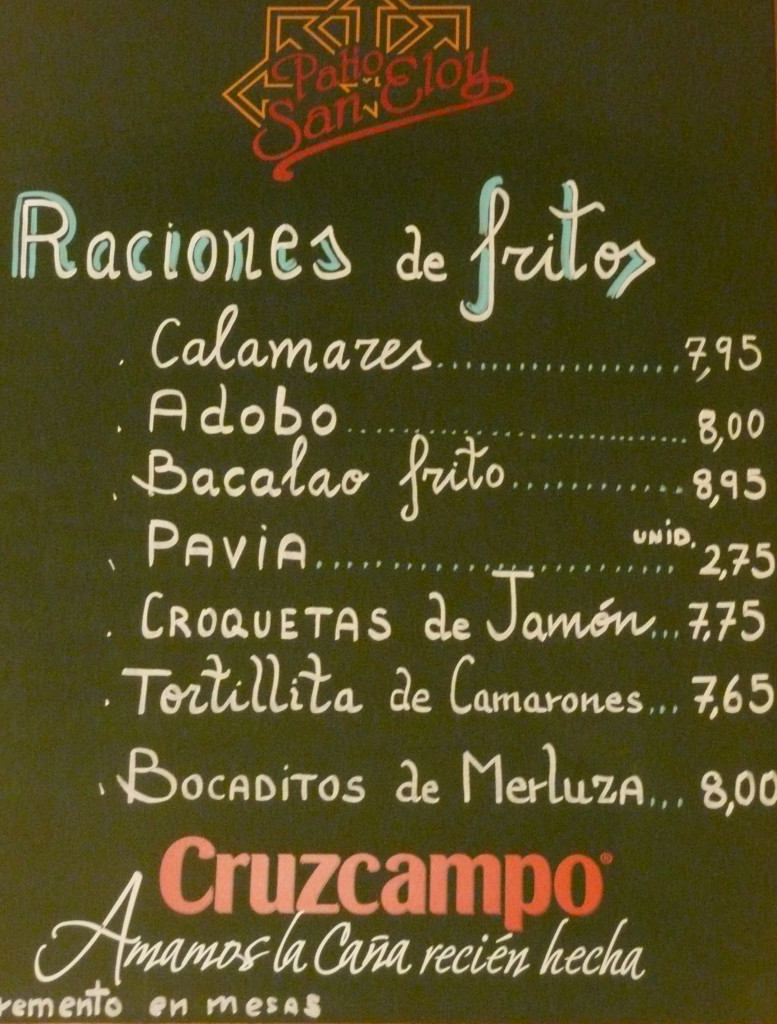 Patio
San Eloy
Raciones de fritos
. Calamares................. 7,95
. Adobo........................ 8,00
. Bacalao frito............ 8,95
. PAVIA........................ UNID. 2,75
. CROQUETAS de Jamón... 7,75
. Tortillita de Camarones... 7,65
. BOCADITOS de MerLUZA... 8,00
Cruzcampo®
Amamos la Caña recién hecha
remento en mesas